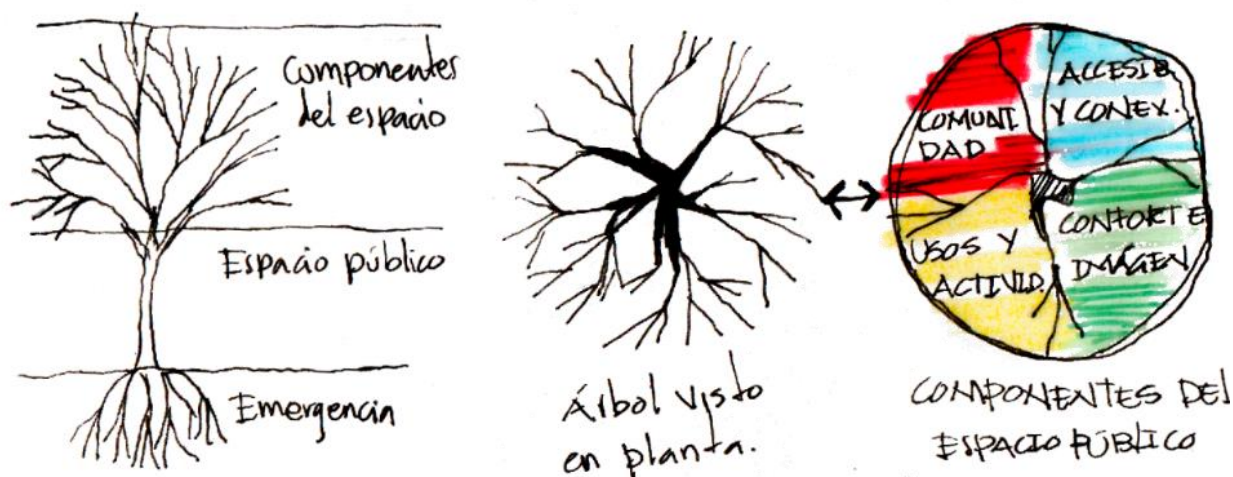 Componentes
del espacio
Espacio público
Emergencia
Árbol visto
en planta.
COMUNI
DAD
ACCESIB
Y CONEX.
USOS Y
ACTIVID.
CONFORT E
IMÁGEN
COMPONENTES DEL
ESPACIO PÚBLICO